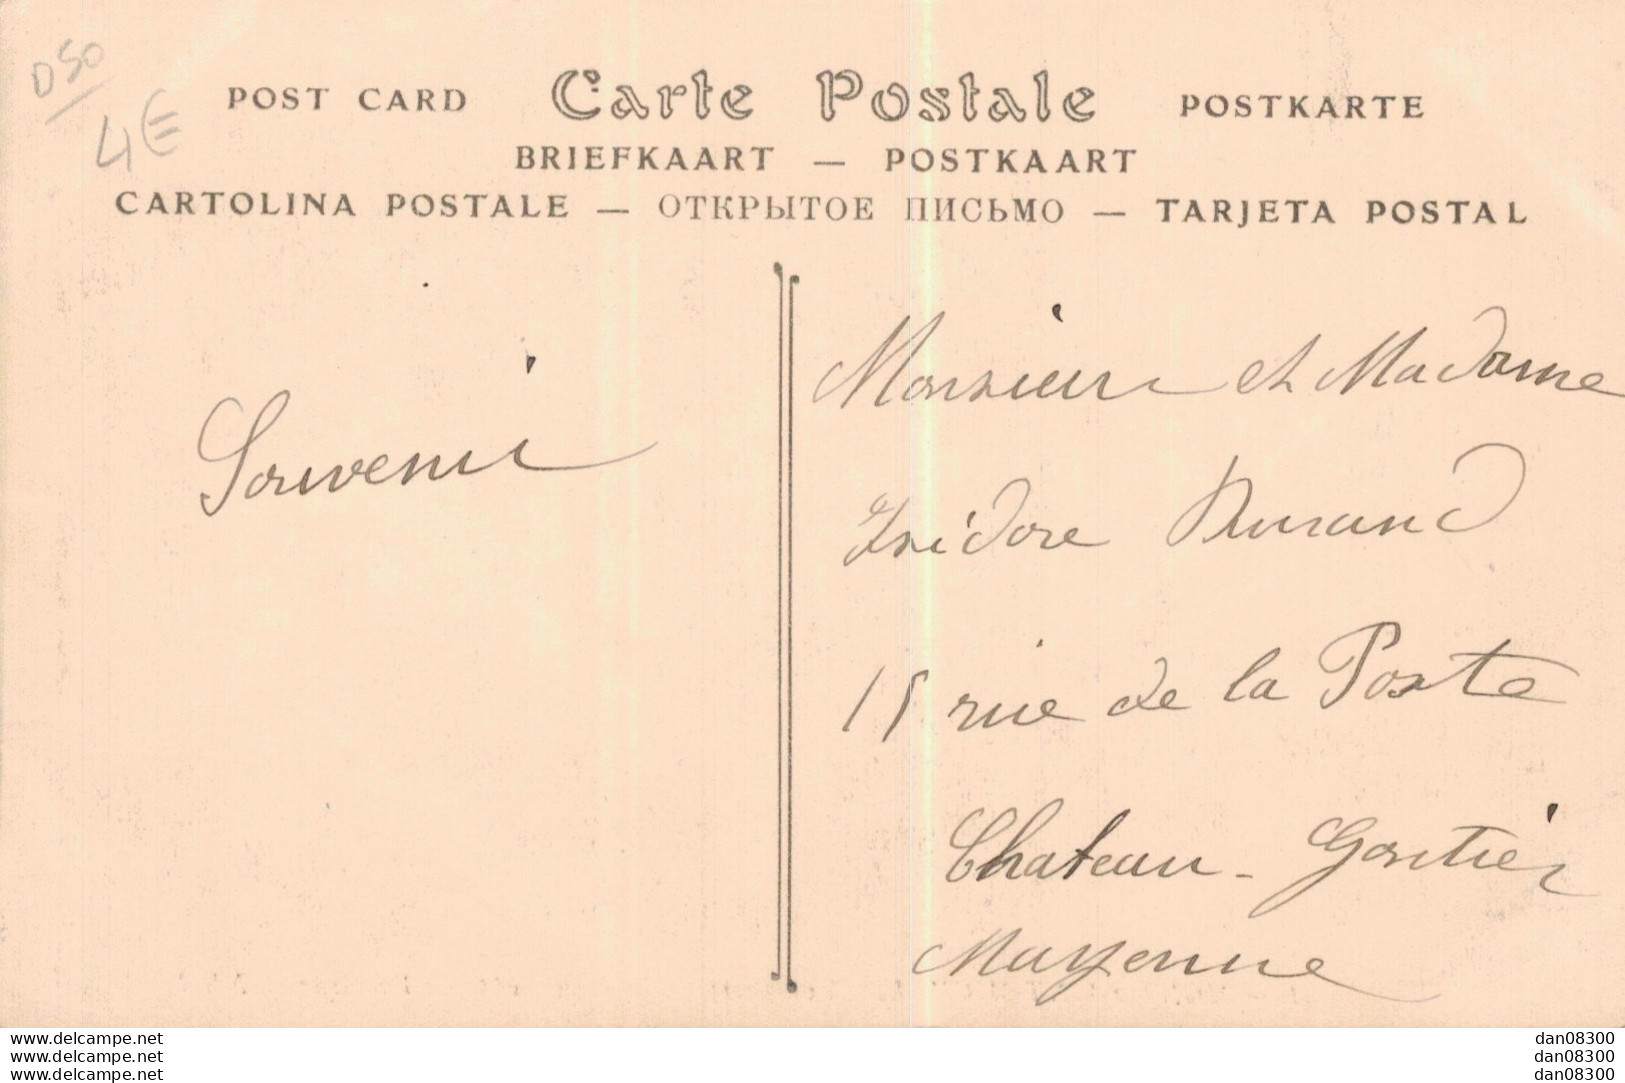 D50
4€
POST CARD Carte Postale POSTKARTE
BRIEFKAART — POSTKAART
CARTOLINA POSTALE — ОТКРЫТОЕ ПИСЬМО — TARJETA POSTAL
Souvenir
Monsieur et Madame
Isidore Durand
15 rue de la Poste
Chateau-Gontier
Mayenne
www.delcampe.net
www.delcampe.net
www.delcampe.net
dan08300
dan08300
dan08300